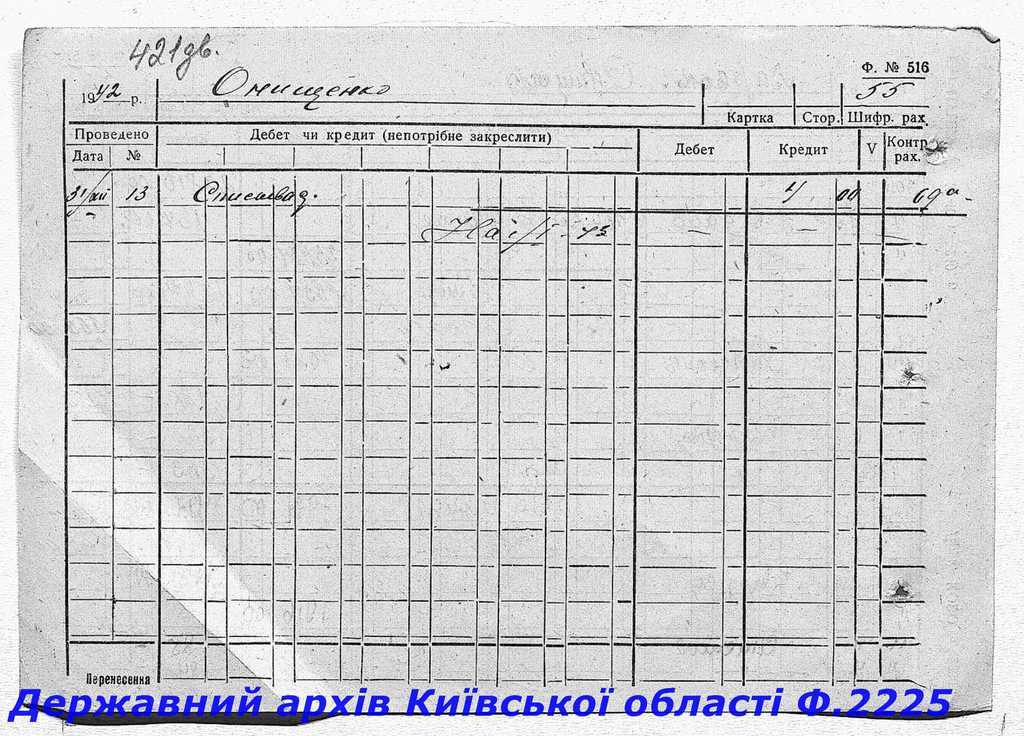 421 дв.
Ф. № 516
1942 р. Онищенко 55
Картка Стор. Шифр. рах.
Проведено Дебет чи кредит (непотрібне закреслити) Дебет Кредит V Контр. рах.
Дата №
31/XII 13 00 69а
На 1/I - 43 — —
Перенесення
Державний архів Київської області Ф.2225